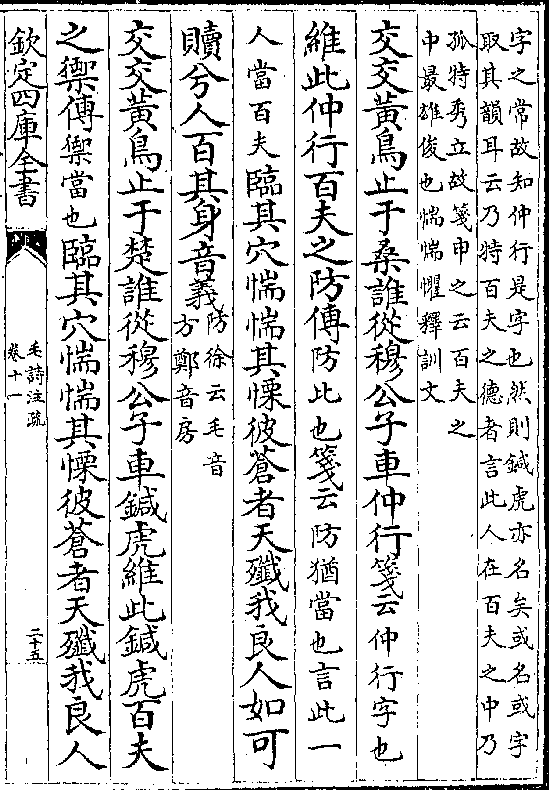 字之常故知仲行是字也然則鍼虎亦名矣或名或字
取其韻耳云乃特百夫之德者言此人在百夫之中乃
孤特秀立故箋申之云百夫之
中最雄俊也惴惴懼釋訓文
交交黃鳥止于桑誰從穆公子車仲行箋云仲行字也
維此仲行百夫之防傳防比也箋云防猶當也言此一
人當百夫臨其穴惴惴其慄彼蒼者天殲我良人如可
贖兮人百其身音義防徐云毛音
方鄭音房
交交黃鳥止于楚誰從穆公子車鍼虎維此鍼虎百夫
之禦傳禦當也臨其穴惴惴其慄彼蒼者天殲我良人
欽定四庫全書
毛詩注疏
卷十一
二十五